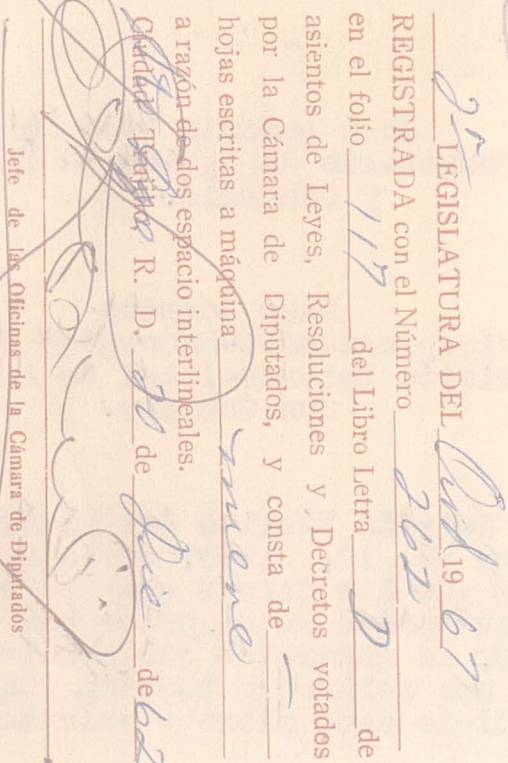 2a LEGISLATURA DEL Ord 19 67
REGISTRADA con el Número 262
en el folio 117 del Libro Letra D de
asientos de Leyes, Resoluciones y Decretos votados
por la Cámara de Diputados, y consta de —
hojas escritas a máquina
a razón de dos espacio interlineales.
R. D. 20 de Dic. de 67
Jefe de las Oficinas de la Cámara de Diputados